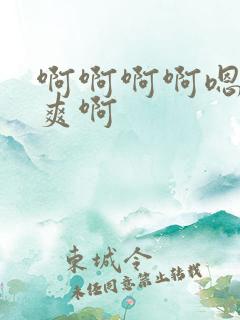 啊啊啊啊嗯
爽啊
东城令
未经同意禁止转载